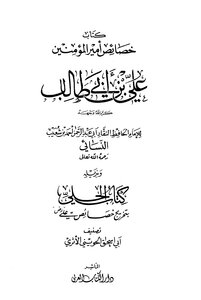 كتاب
خصائص أمير المؤمنين
علي بن أبي طالب
كرم الله وجهه
للإمام الحافظ النقاد أبي عبد الرحمن أحمد بن شعيب
النسائي
رحمه الله تعالى
وبذيله
كتاب الحلي
بتخريج خصائص علي
تصنيف
أبي إسحق الحويني الأثري
الناشر
دار الكتاب العربي